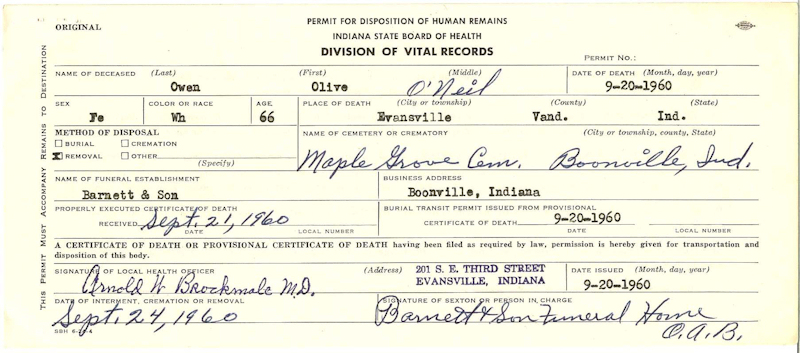 ORIGINAL
PERMIT FOR DISPOSITION OF HUMAN REMAINS
INDIANA STATE BOARD OF HEALTH
DIVISION OF VITAL RECORDS
PERMIT NO.:
THIS PERMIT MUST ACCOMPANY REMAINS TO DESTINATION
NAME OF DECEASED (Last) (First) (Middle) DATE OF DEATH (Month, day, year)
Owen Olive O'Neil 9-20-1960
SEX COLOR OR RACE AGE PLACE OF DEATH (City or township) (County) (State)
Fe Wh 66 Evansville Vand. Ind.
METHOD OF DISPOSAL NAME OF CEMETERY OR CREMATORY (City or township, county, State)
BURIAL CREMATION
REMOVAL OTHER
(Specify)
Maple Grove Cem. Boonville, Ind.
NAME OF FUNERAL ESTABLISHMENT BUSINESS ADDRESS
Barnett & Son Boonville, Indiana
PROPERLY EXECUTED CERTIFICATE OF DEATH BURIAL TRANSIT PERMIT ISSUED FROM PROVISIONAL
RECEIVED Sept. 21, 1960 CERTIFICATE OF DEATH 9-20-1960
DATE LOCAL NUMBER DATE LOCAL NUMBER
A CERTIFICATE OF DEATH OR PROVISIONAL CERTIFICATE OF DEATH having been filed as required by law, permission is hereby given for transportation and
disposition of this body.
SIGNATURE OF LOCAL HEALTH OFFICER (Address) 201 S. E. THIRD STREET DATE ISSUED (Month, day, year)
Arnold W Brockmole M.D. EVANSVILLE, INDIANA 9-20-1960
DATE OF INTERMENT, CREMATION OR REMOVAL SIGNATURE OF SEXTON OR PERSON IN CHARGE
Sept. 24, 1960 Barnett & Son Funeral Home
O.A.B.